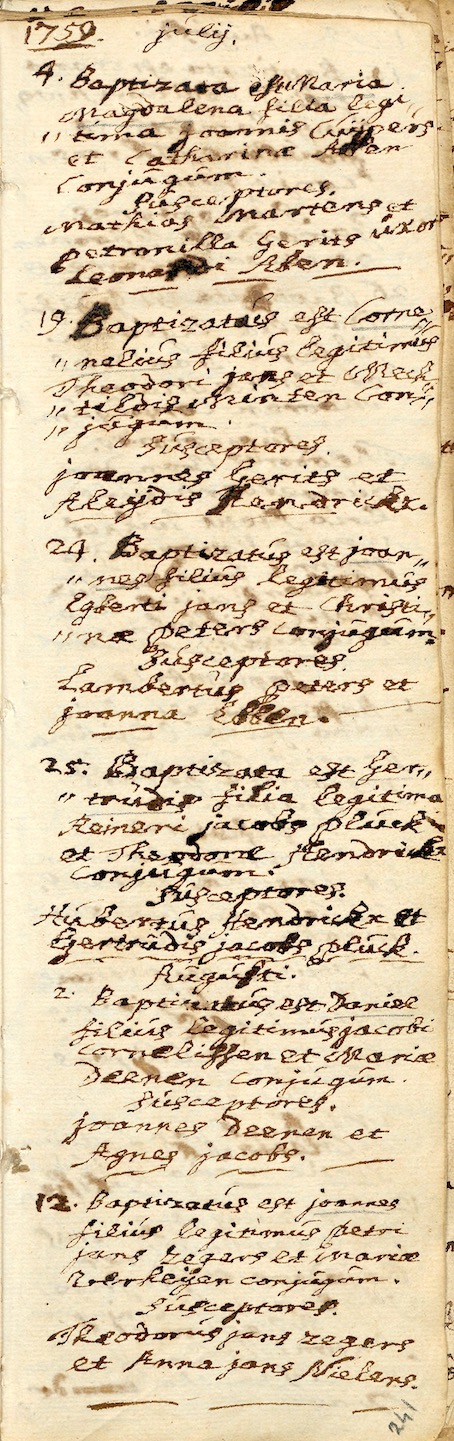 1759. julij.
4. Baptizata est Maria
Magdalena filia legi„
„ tima joannis Cüijpers
et Catharinæ Aben
Conjügüm.
Süsceptores.
Mathias Martens et
petronilla Gerits üxor
Leonardi Aben.
19. Baptizatüs est Corne„
„ neliüs filiüs legitimüs
Theodori jans et Mech„
„ tildis Conj„
„ jügüm.
Süsceptores.
joannes Gerits et
Aleijdis Hendrickx.
24. Baptizatüs est joan„
„ nes filiüs legitimüs
Egberti jans et Christi„
„ næ peters Conjügüm.
Süsceptores.
Lambertüs peters et
joanna Ebben.
25. Baptizata est Ger„
„ trüdis filia legitima
Reineri jacobs plück
et Theodoræ Hendrickx
Conjügüm.
Süsceptores.
Hübertüs Hendrickx et
Gertrüdis jacobs plück.
Aügüsti.
2. Baptizatüs est Daniel
filiüs legitimüs jacobi
Cornelissen et Mariæ
Deenen conjügüm.
Süsceptores.
joannes Deenen et
Agnes jacobs.
12. Baptizatüs est joannes
filiüs legitimüs petri
jans zegers et Mariæ
Verheijen conjügüm.
Süsceptores.
Theodorüs jans zegers
et Anna jans Nielens.
241